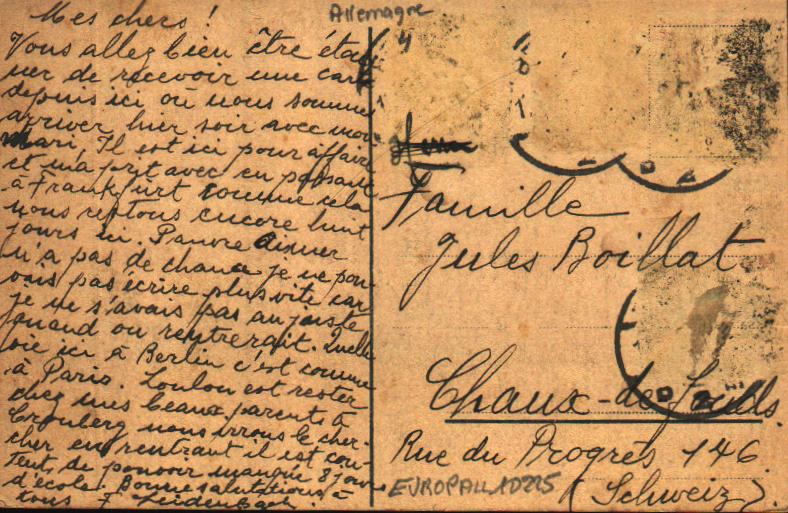 Allemagne
Mes chers !
Vous allez bien être éton
ner de recevoir une carte
depuis ici où nous somme
arriver hier soir avec mon
Mari, Il est ici pour affaire
et m'a prit avec en passant
à Frankfurt comme cela
nous restons encore huit
jours ici. Pauvre
n'a pas de chance je ne pou
vais pas écrire plus vite car
je ne s'avais pas au juste
quand on rentrerait. Quelle
vie ici à Berlin c'est comme
à Paris. Loulou est rester
chez mes beaux parents à
Cronberg nous irrons le cher-
cher en rentrant il est con-
tent de pouvoir manqué 8 jours
d'école. Bonne salutations à
tous F
Famille
Jules Boillat
Chaux-de-fonds.
Rue du Progrès 146.
(Schweiz).
EUROPALL1D225